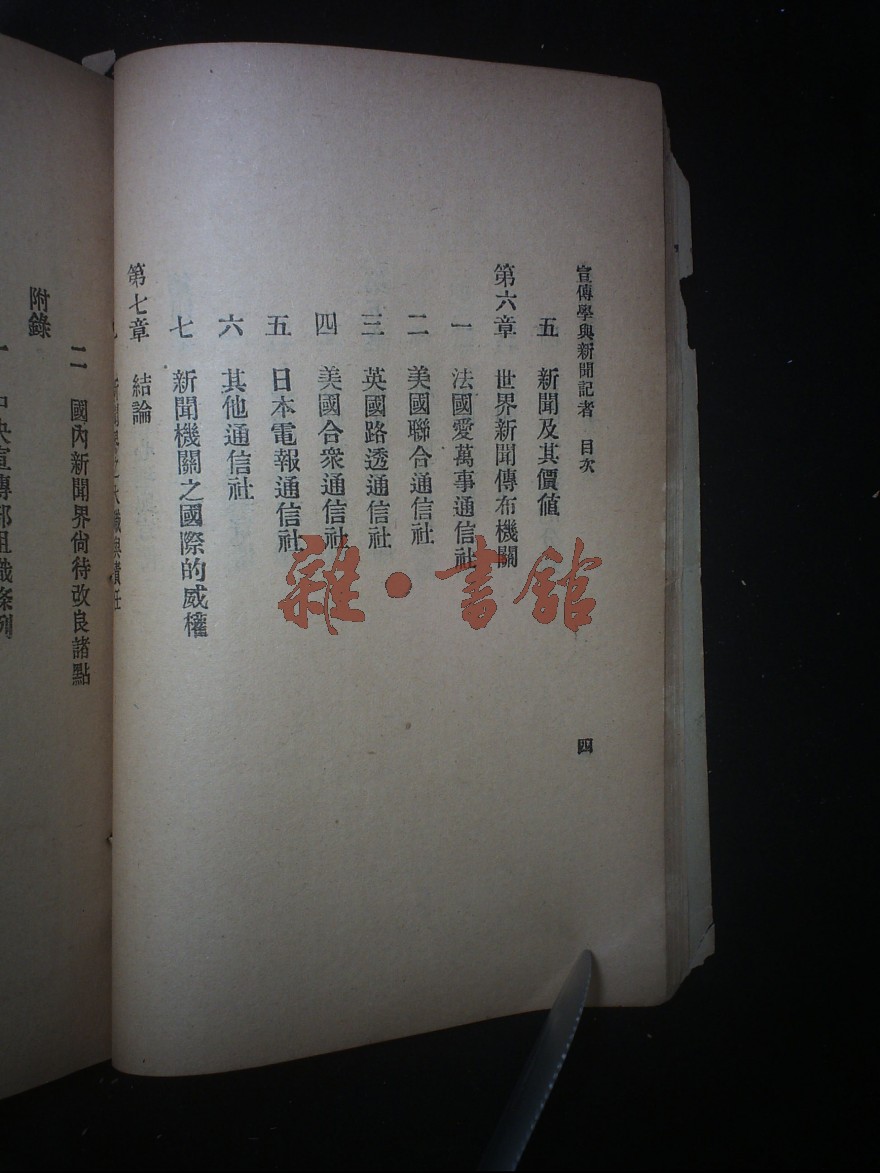 宣傳學與新聞記者 目次
五 新聞及其價値
第六章 世界新聞傳布機關
一 法國愛萬事通信社
二 美國聯合通信社
三 英國路透通信社
四 美國合衆通信社
五 日本電報通信社
六 其他通信社
七 新聞機關之國際的威權
第七章 結論
與責任
二 國內新聞界尙待改良諸點
附錄
一 中央宣傳部組織條例
四
雜·書館